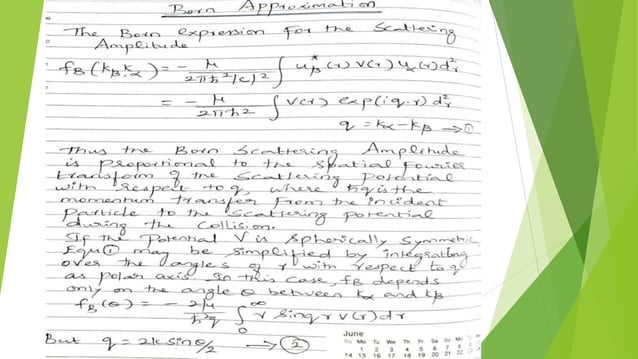 Born Approximation
The Born expression for the Scattering
Amplitude
f_B(k_β k_α) = - μ / 2πħ²|c|² ∫ u_β*(r) V(r) u_α(r) d³r
= - μ / 2πħ² ∫ V(r) exp(iq·r) d³r
q = k_α - k_β → ①
Thus the Born Scattering Amplitude
is proportional to the spatial Fourier
transform of the Scattering potential
with respect to q, where ħq is the
momentum transfer from the incident
particle to the scattering potential
during the Collision.
If the Potential V is Spherically Symmetric
Equ① may be simplified by integrating
over the angles of r with respect to q
as polar axis. In this case, f_B depends
only on the angle θ between k_α and k_β
f_B(θ) = - 2μ / ħ²q ∫₀^∞ r sin qr V(r) dr
But q = 2k sin θ/2 → ②
June
Su Mo Tu We Th Fr Sa
1 2 3 4 5 6
14 15 16 17 18 19 20